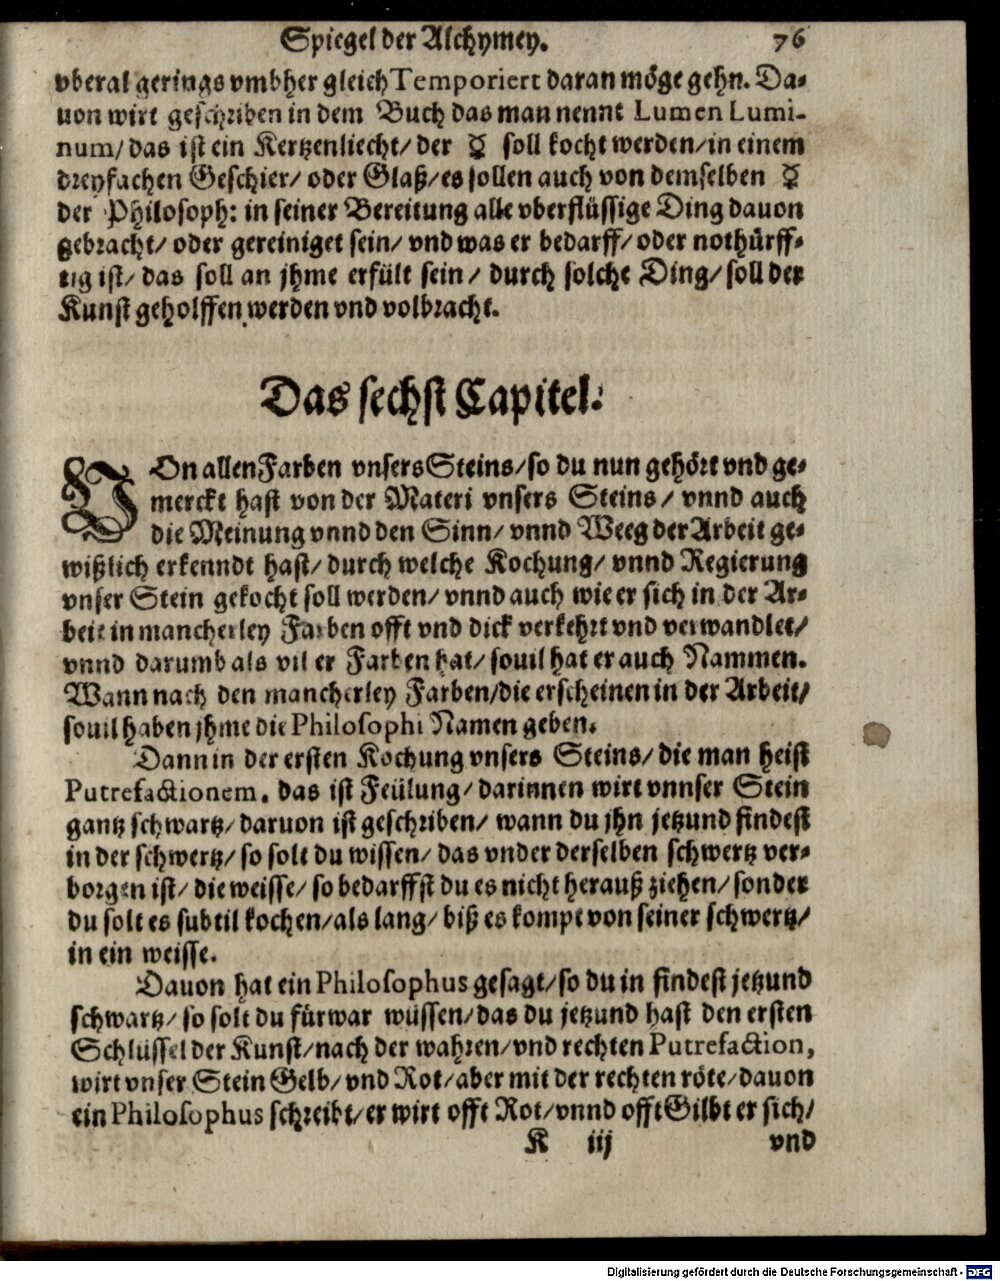 Spiegel der Alchymey. 76
vberal gerings vmbher gleich Temporiert daran möge gehn. Da-
uon wirt geschriben in dem Buch das man nennt Lumen Lumi-
num/ das ist ein Kertzenliecht/ der ☿ soll kocht werden/ in einem
dreyfachen Geschier/ oder Glaß/ es sollen auch von demselben ☿
der Philosoph: in seiner Bereitung alle vberflüssige Ding dauon
gebracht/ oder gereiniget sein/ vnd was er bedarff/ oder nothürff-
tig ist/ das soll an jhme erfült sein/ durch solche Ding/ soll der
Kunst geholffen werden vnd volbracht.
Das sechst Capitel.
VOn allen Farben vnsers Steins/ so du nun gehört vnd ge-
merckt hast von der Materi vnsers Steins/ vnnd auch
die Meinung vnnd den Sinn/ vnnd Weeg der Arbeit ge-
wißlich erkenndt hast/ durch welche Kochung/ vnnd Regierung
vnser Stein gekocht soll werden/ vnnd auch wie er sich in der Ar-
beit in mancherley Farben offt vnd dick verkehrt vnd verwandlet/
vnnd darumb als vil er Farben hat/ souil hat er auch Nammen.
Wann nach den mancherley Farben/ die erscheinen in der Arbeit/
souil haben jhme die Philosophi Namen geben.
Dann in der ersten Kochung vnsers Steins/ die man heist
Putrefactionem. das ist Feülung/ darinnen wirt vnnser Stein
gantz schwartz/ daruon ist geschriben/ wann du jhn jetzund findest
in der schwertz/ so solt du wissen/ das vnder derselben schwertz ver-
borgen ist/ die weisse/ so bedarffst du es nicht herauß ziehen/ sonder
du solt es subtil kochen/ als lang/ biß es kompt von seiner schwertz/
in ein weisse.
Dauon hat ein Philosophus gesagt/ so du in findest jetzund
schwartz/ so solt du fürwar wüssen/ das du jetzund hast den ersten
Schlüssel der Kunst/ nach der wahren/ vnd rechten Putrefaction,
wirt vnser Stein Gelb/ vnd Rot/ aber mit der rechten röte/ dauon
ein Philosophus schreibt/ er wirt offt Rot/ vnnd offt Gilbt er sich/
K iij vnd
Digitalisierung gefördert durch die Deutsche Forschungsgemeinschaft - DFG